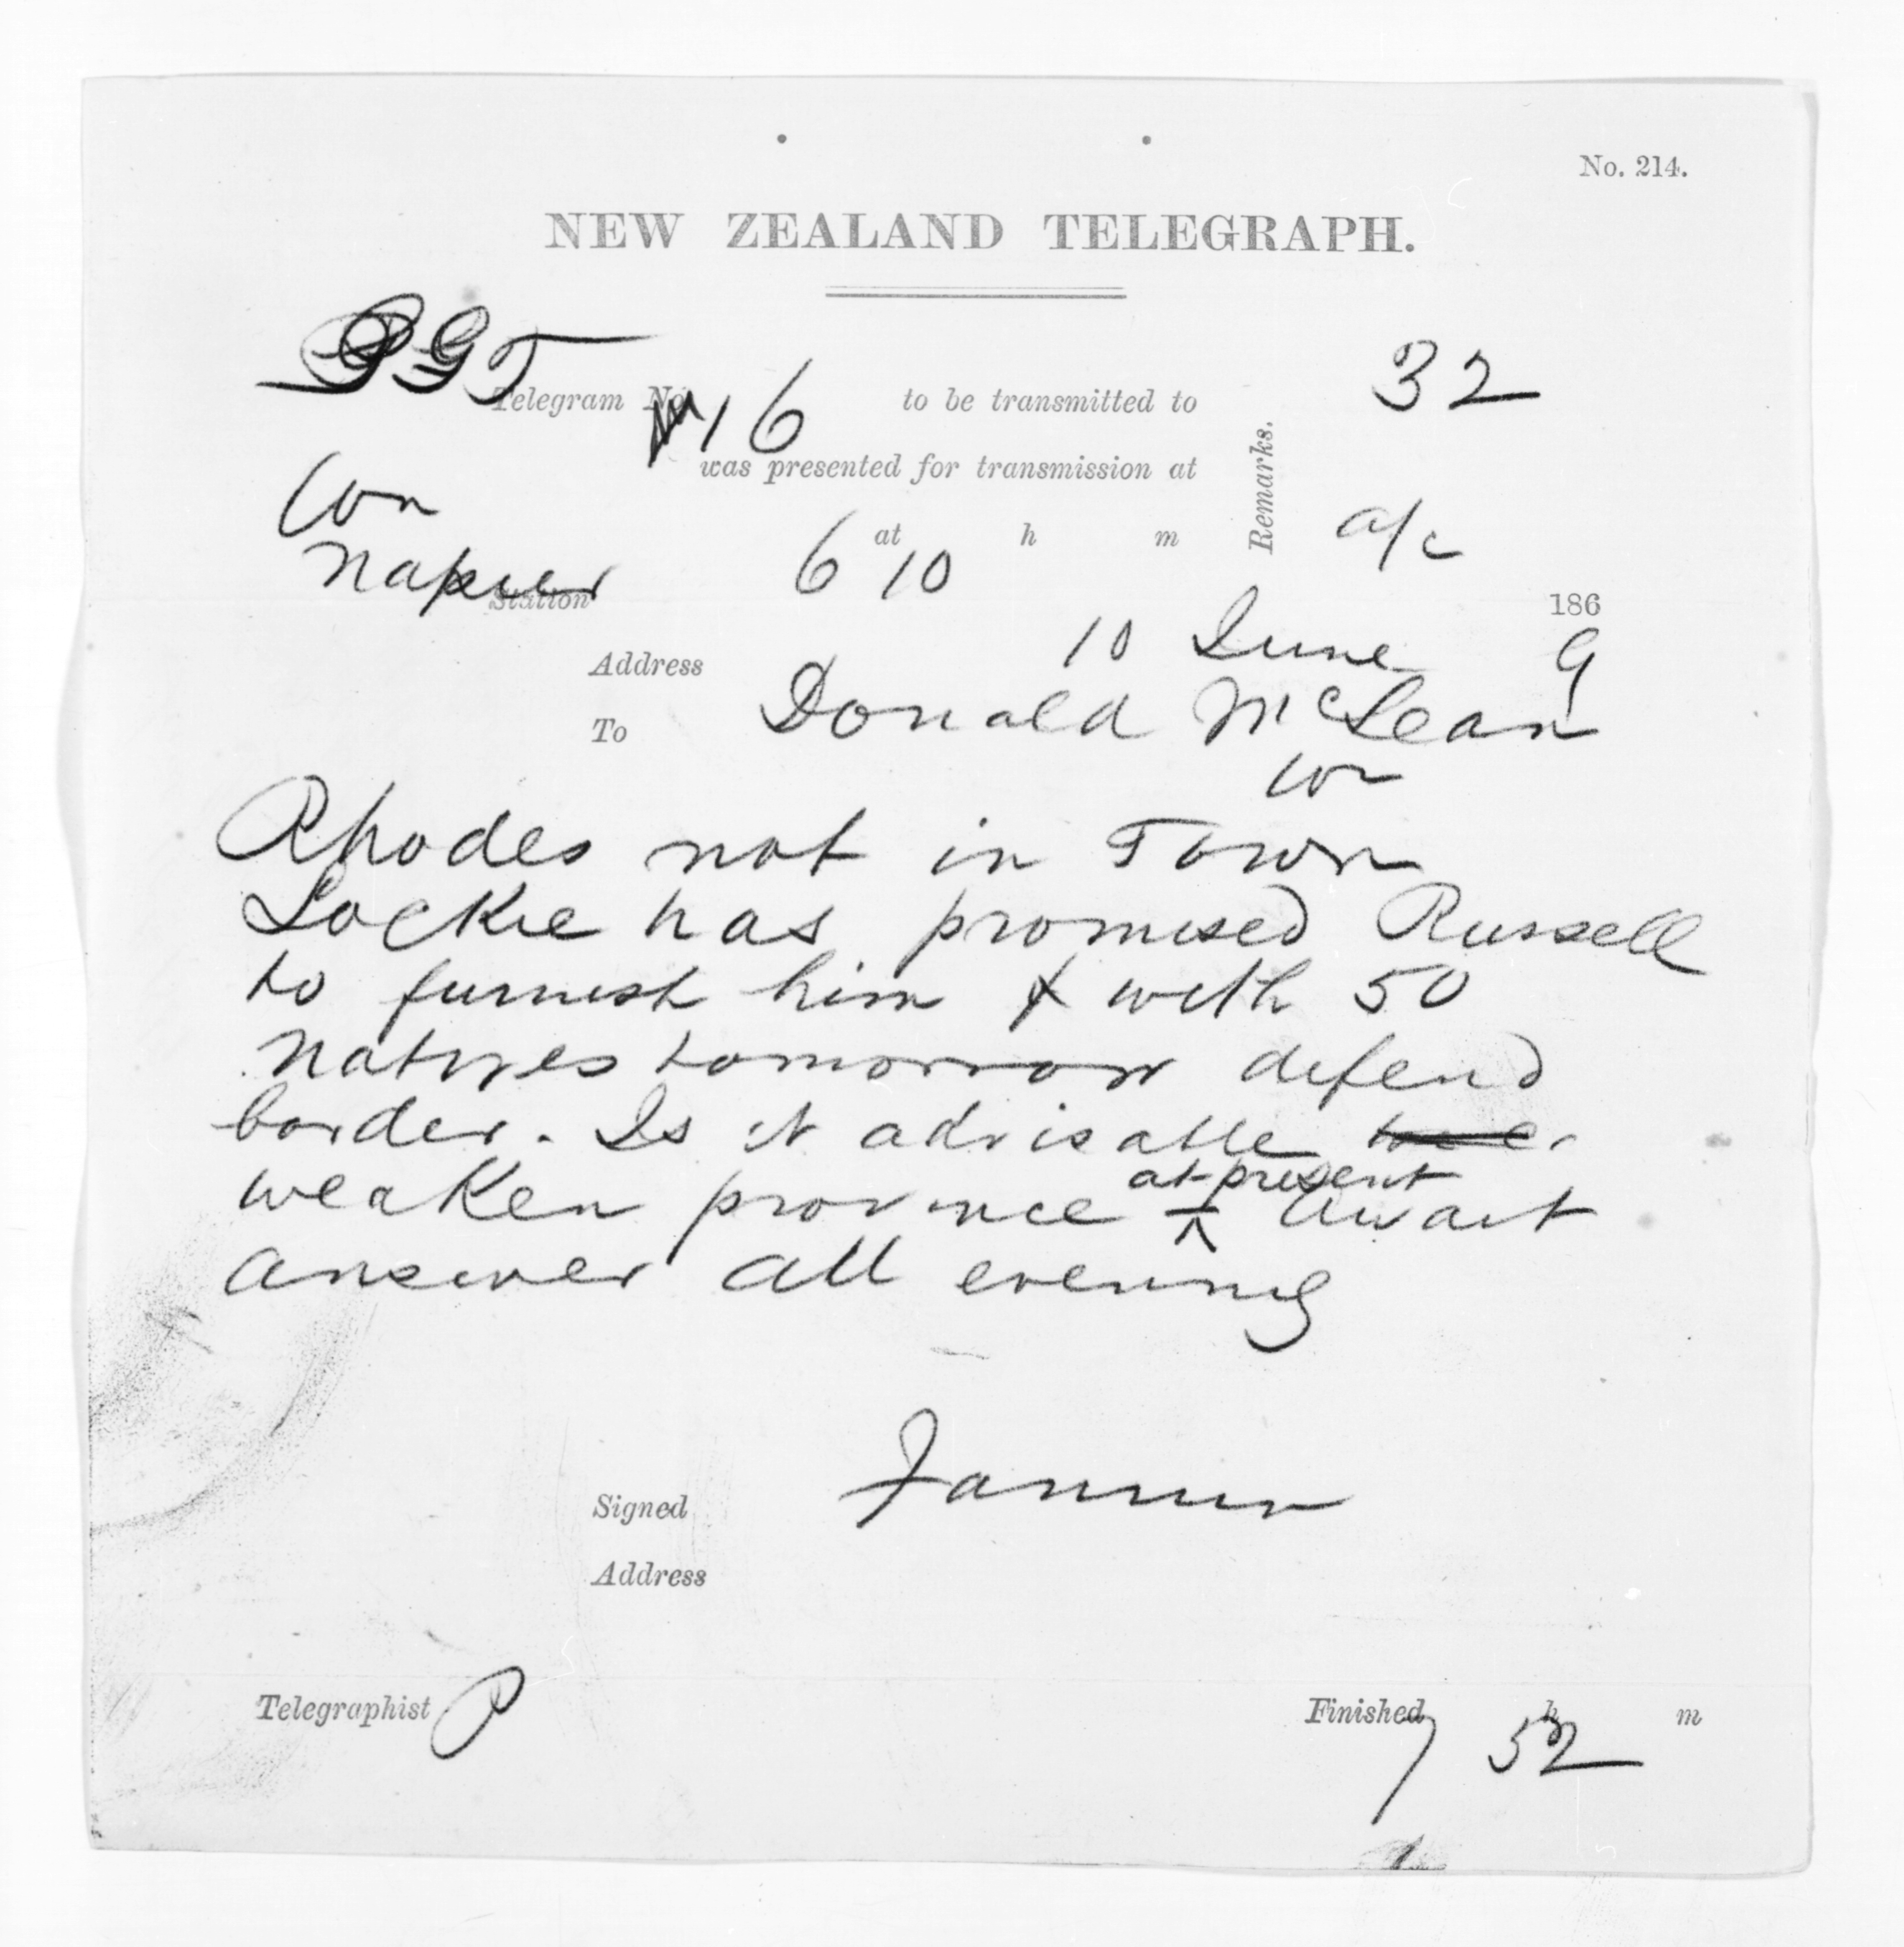 No. 214.
NEW ZEALAND TELEGRAPH.
PGT
Telegram No. 16 to be transmitted to
32
Wn
was presented for transmission at
Remarks.
a/c
Napier
Station
6 at 10 h m
10 June 186 9
Address
To Donald McLean
Wn
Rhodes not in Town
Lockie has promised Russell
to furnish him with 50
natives tomorrow defend
border. Is it advisable
weaken province at present await
answer all evening
Signed Fannin
Address
Telegraphist P
Finished 7 h 52 m